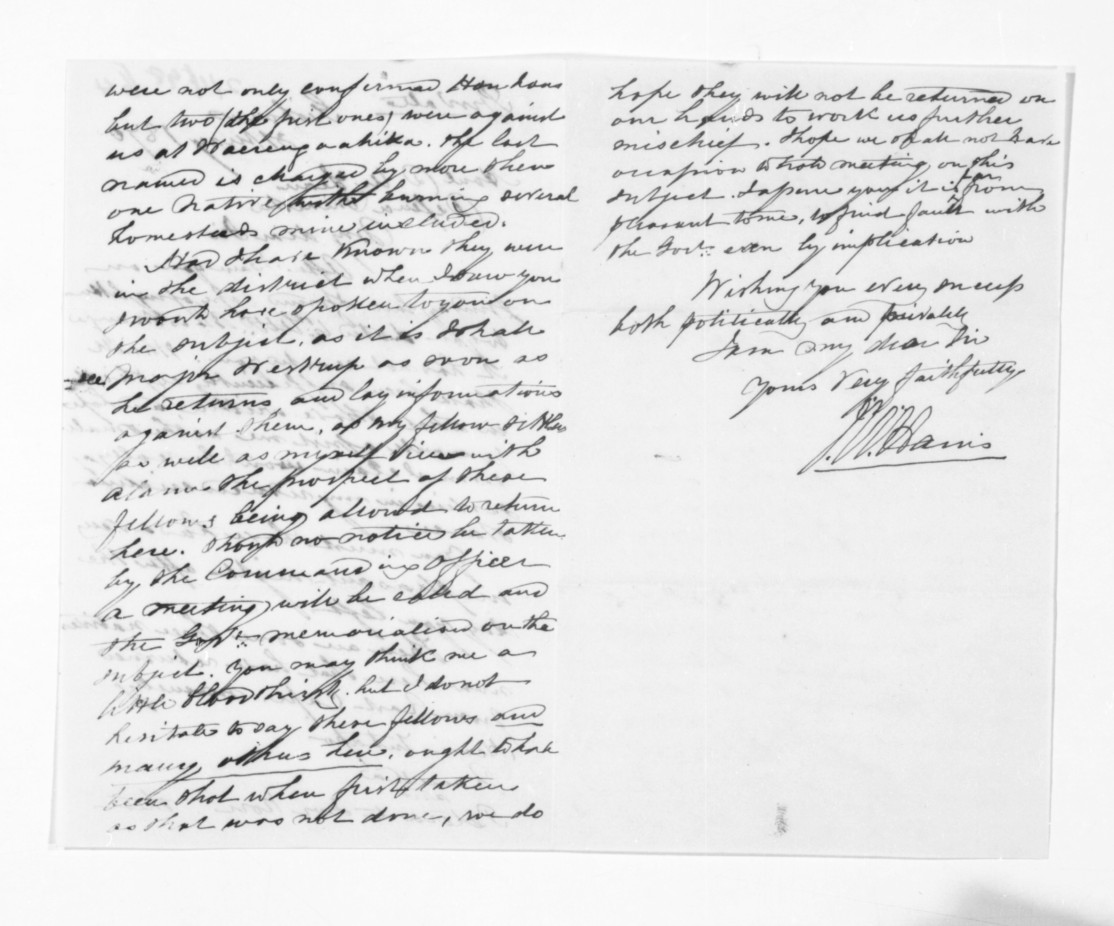 were not only confirmed Hauhaus
but two (the first ones) were against
us at Waerengaahika. The last
named is charged by more than
one Native with burning several
homesteads mine included.
Had I have known they were
in the district when I saw you
I would have spoken to you on
the subject, as it is I shall
see Major Westrup as soon as
he returns and lay informations
against them, as my fellow settlers
as well as myself view with
alarm the prospect of these
fellows being allowed to return
here. Should no notice be taken
by the Commanding Officer
a meeting will be called and
the Govt. memorialised on the
subject. You may think me a
little bloodthirsty but I do not
hesitate to say these fellows and
many others here, ought to have
been shot when first taken
as that was not done, we do
hope they will not be returned on
our hands to work us further
mischief. I hope we shall not have
occasion to hold meeting on this
subject. I assure you it is far from
pleasant to me, to find fault with
the Govt. even by implication
Wishing you every success
both politically and privately
I am my dear Sir
Yours Very faithfully
J.W. Harris